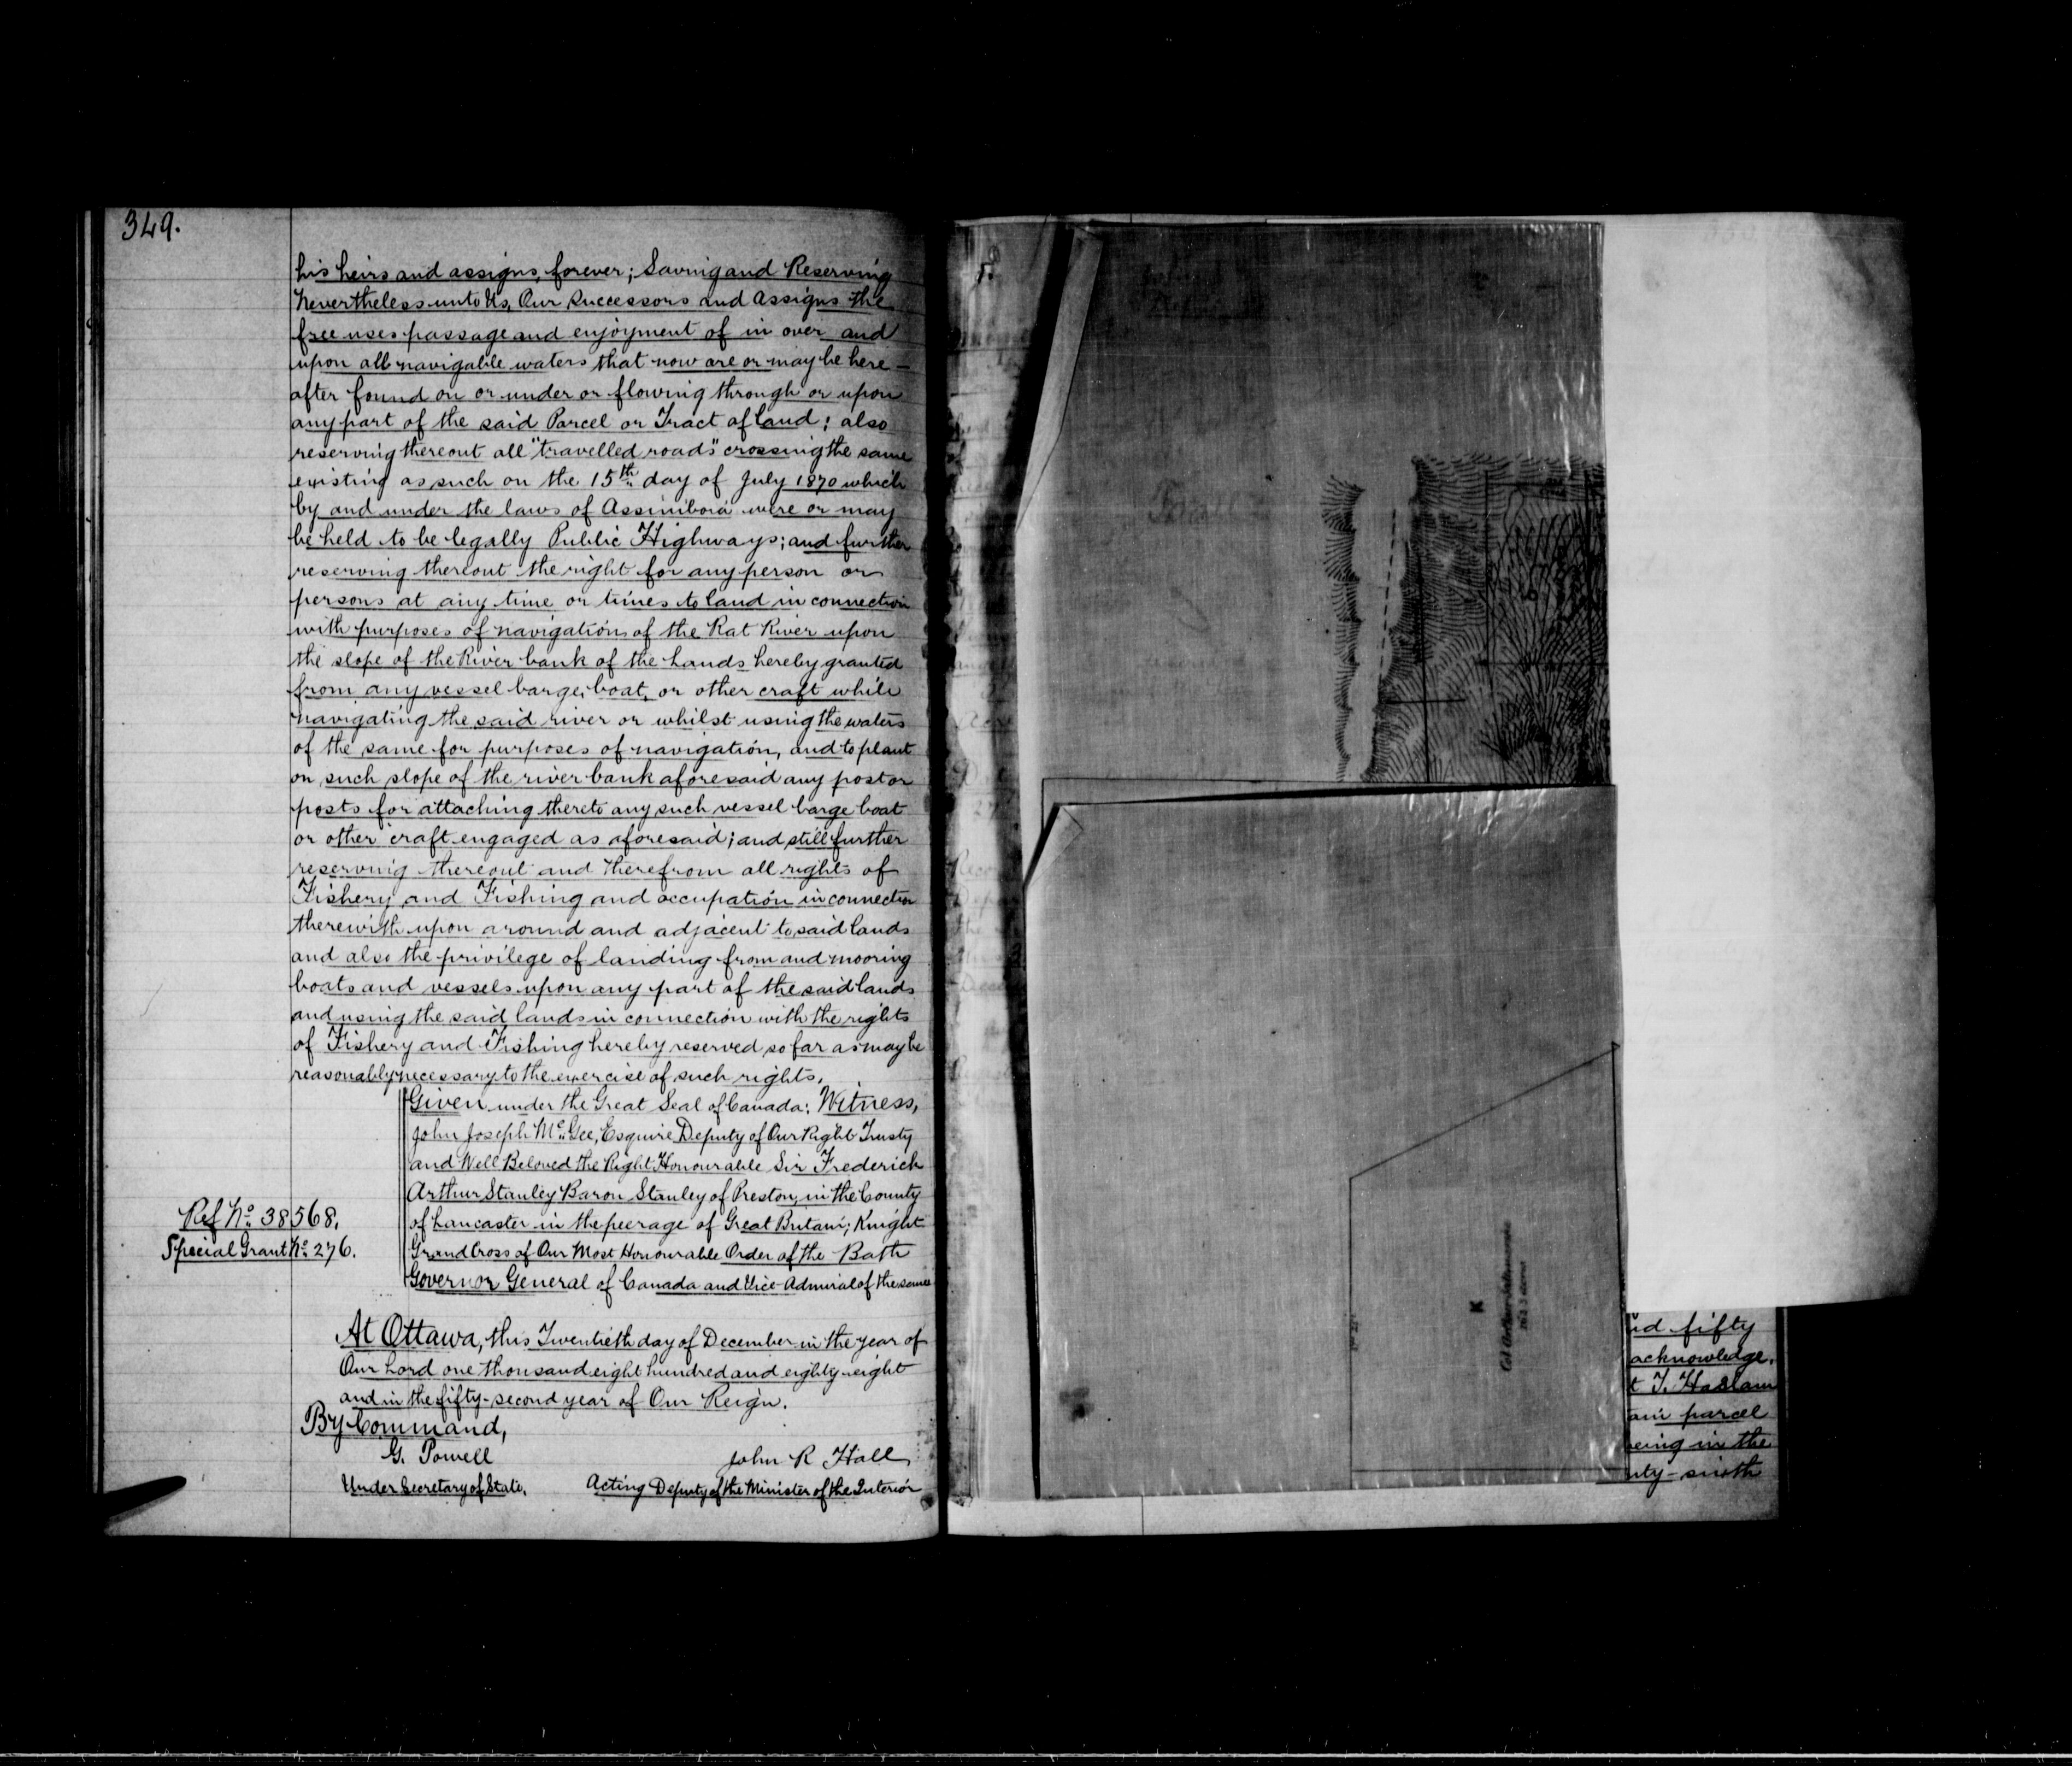 349.
his heirs and assigns, forever; Saving and Reserving
Nevertheless unto Us, Our Successors and Assigns the
free uses passage and enjoyment of in over and
upon all navigable waters that now are or may be here-
after found on or under or flowing through or upon
any part of the said Parcel or Tract of land; also
reserving thereout all "travelled roads" crossing the same
existing as such on the 15th day of July 1870 which
by and under the laws of Assiniboia were or may
be held to be legally Public Highways; and further
reserving thereout the right for any person or
persons at any time or times to land in connection
with purposes of navigation of the Rat River upon
the slope of the River bank of the lands hereby granted
from any vessel barge, boat, or other craft while
navigating the said river or whilst using the waters
of the same for purposes of navigation, and to plant
on such slope of the river bank aforesaid any post or
posts for attaching thereto any such vessel barge boat
or other craft engaged as aforesaid; and still further
reserving thereout and therefrom all rights of
Fishery and Fishing and occupation in connection
therewith upon around and adjacent to said lands
and also the privilege of landing from and mooring
boats and vessels upon any part of the said lands
and using the said lands in connection with the rights
of Fishery and Fishing hereby reserved so far as may be
reasonably necessary to the exercise of such rights.
Given under the Great Seal of Canada: Witness,
John Joseph McGee, Esquire Deputy of Our Right Trusty
and Well Beloved the Right Honourable Sir Frederick
Arthur Stanley Baron Stanley of Preston, in the County
of Lancaster in the peerage of Great Britain; Knight
Grand Cross of Our Most Honourable Order of the Bath
Governor General of Canada and Vice-Admiral of the same
Ref No. 38568.
Special Grant No. 276.
At Ottawa, this Twentieth day of December in the year of
Our Lord one thousand eight hundred and eighty-eight
and in the fifty-second year of Our Reign.
By Command,
G. Powell
John R Hall
Under Secretary of State.
Acting Deputy of the Minister of the Interior
K
fifty
acknowledge.
T. Haslam
parcel
being in the